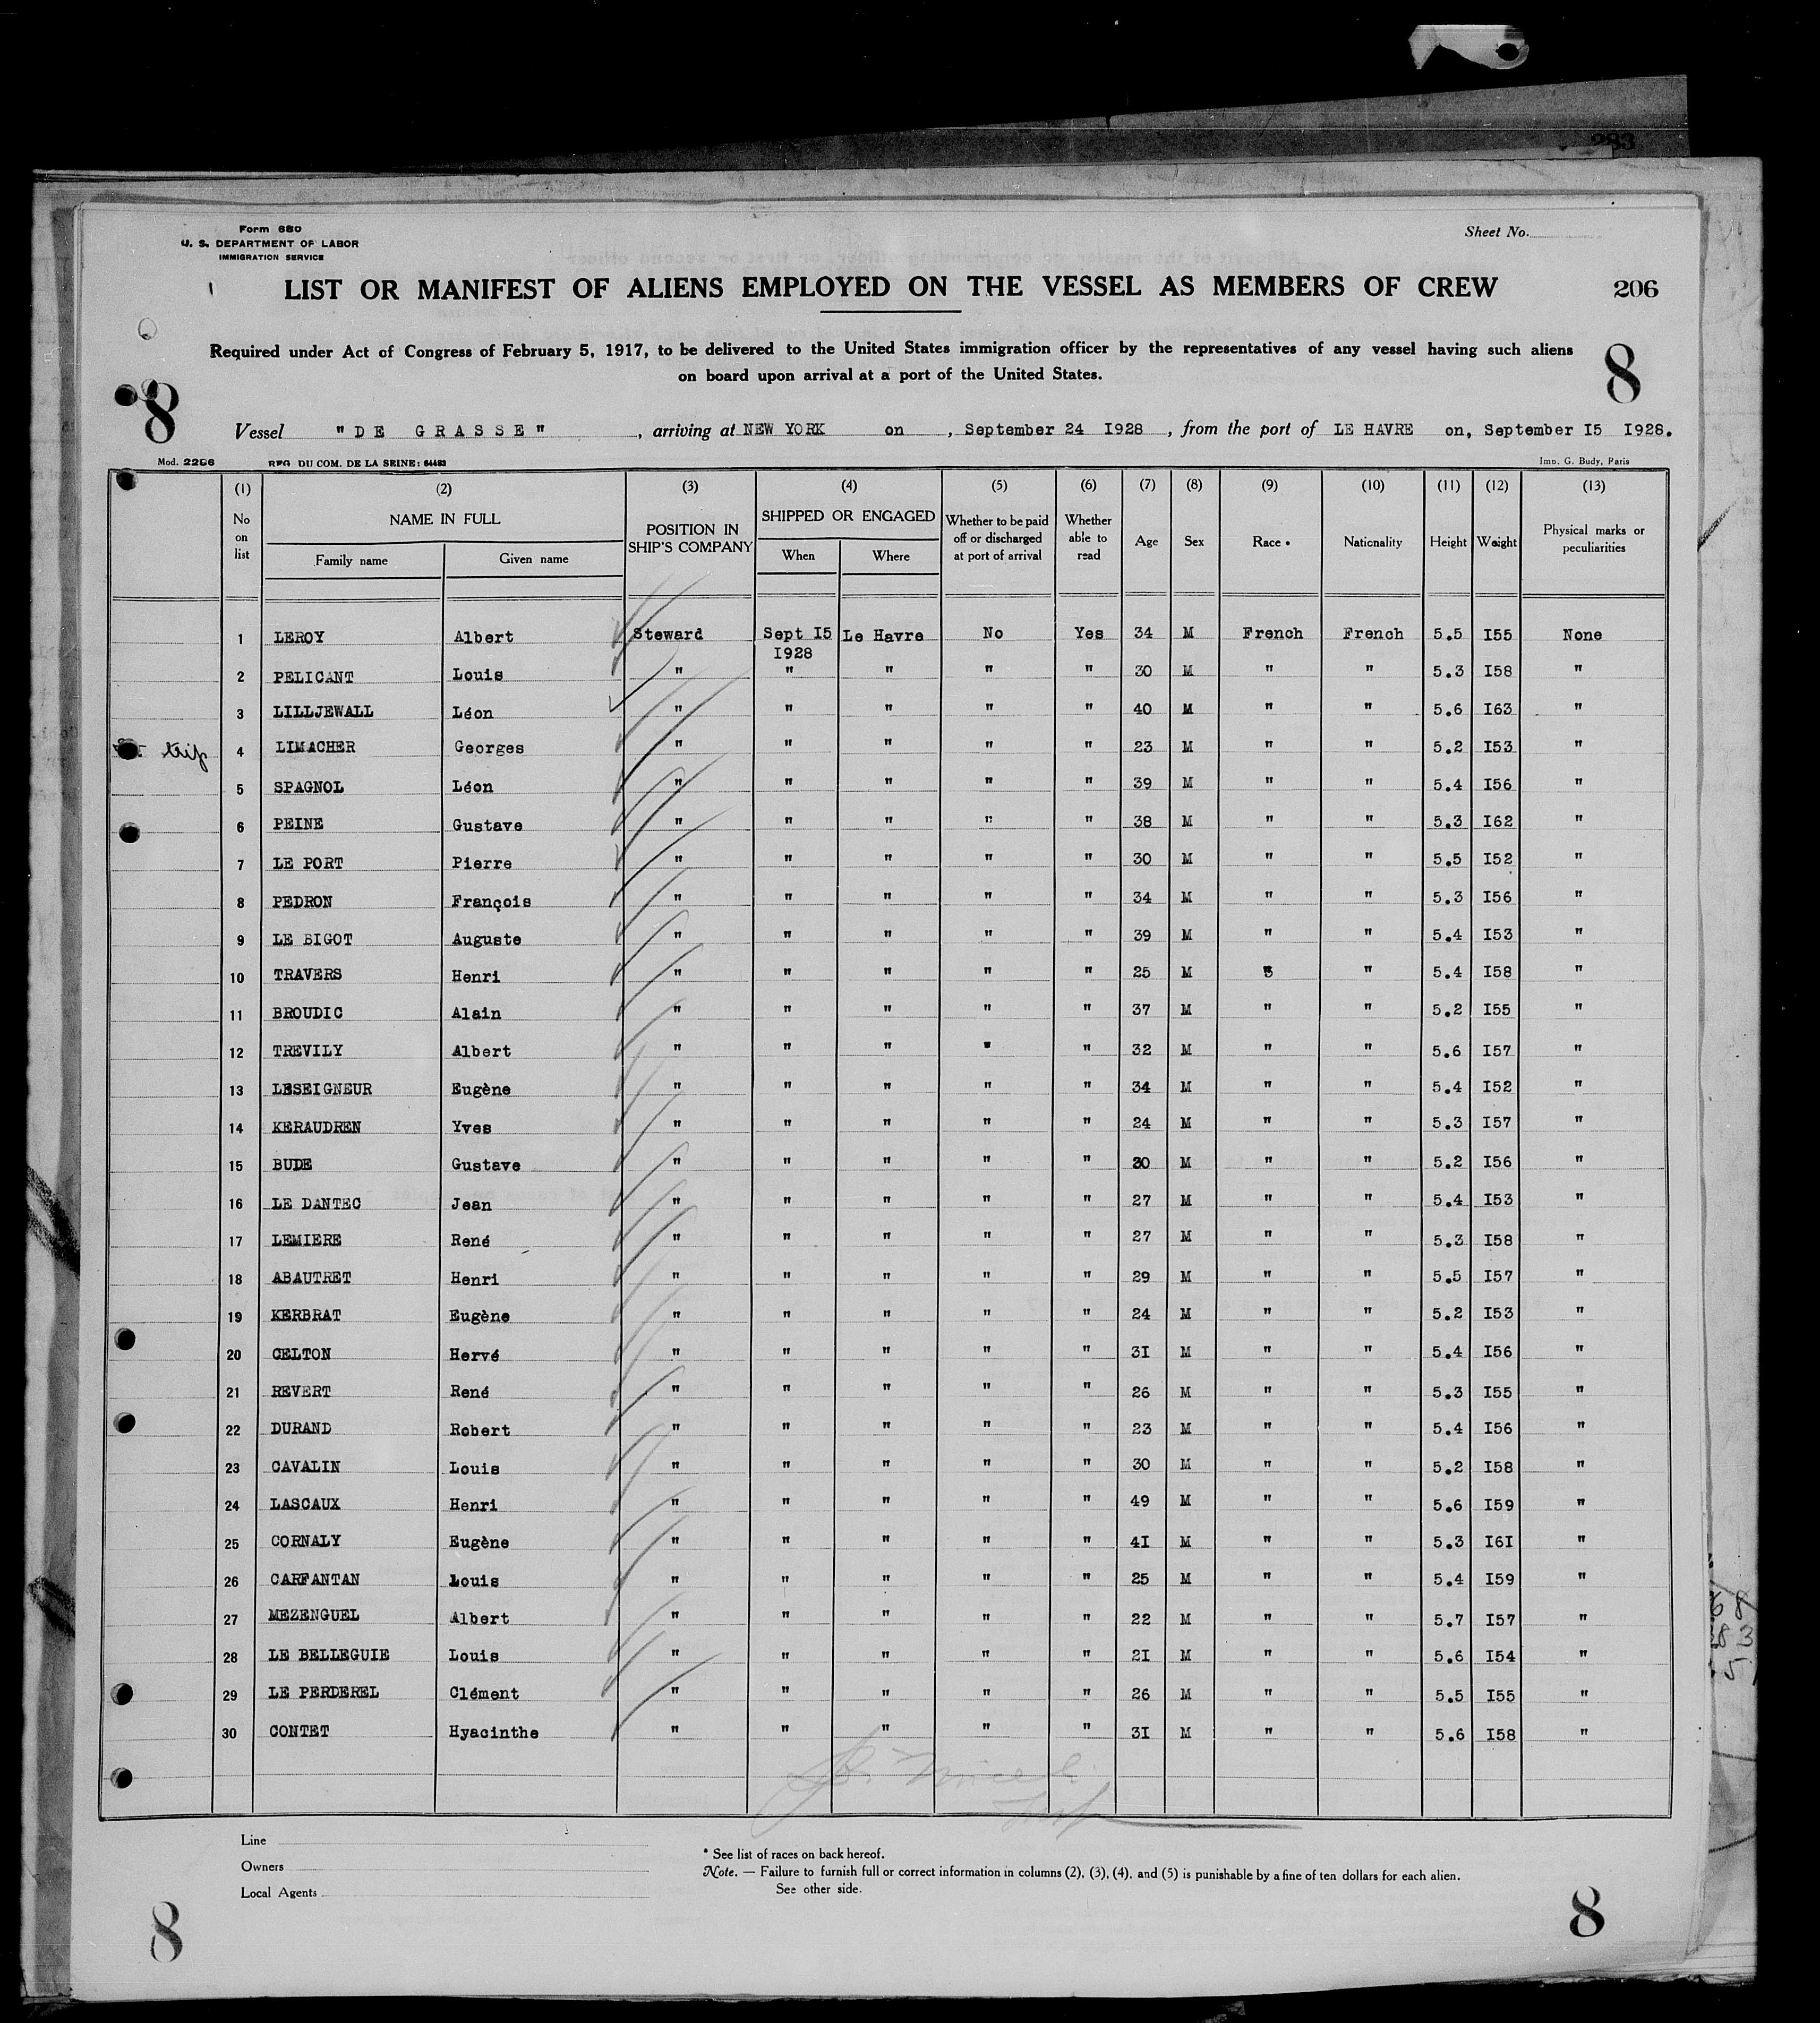 283
Form 680
U. S. DEPARTMENT OF LABOR
IMMIGRATION SERVICE
Sheet No.
LIST OR MANIFEST OF ALIENS EMPLOYED ON THE VESSEL AS MEMBERS OF CREW
206
Required under Act of Congress of February 5, 1917, to be delivered to the United States immigration officer by the representatives of any vessel having such aliens
on board upon arrival at a port of the United States.
8
8
Vessel "DE GRASSE", arriving at NEW YORK on, September 24 I928, from the port of LE HAVRE on, September I5 I928.
Mod. 2296 REG DU COM. DE LA SEINE: 64483 Imp. G. Budy, Paris
(1) (2) (3) (4) (5) (6) (7) (8) (9) (10) (11) (12) (13)
No on list NAME IN FULL Family name Given name POSITION IN SHIP'S COMPANY SHIPPED OR ENGAGED When Where Whether to be paid off or discharged at port of arrival Whether able to read Age Sex Race * Nationality Height Weight Physical marks or peculiarities
1 LEROY Albert Steward Sept I5 I928 Le Havre No Yes 34 M French French 5.5 I55 None
2 PELICANT Louis " " " " " 30 M " " 5.3 I58 "
3 LILLJEWALL Léon " " " " " 40 M " " 5.6 I63 "
4 LIMACHER Georges " " " " " 23 M " " 5.2 I53 "
5 SPAGNOL Léon " " " " " 39 M " " 5.4 I56 "
6 PEINE Gustave " " " " " 38 M " " 5.3 I62 "
7 LE PORT Pierre " " " " " 30 M " " 5.5 I52 "
8 PEDRON François " " " " " 34 M " " 5.3 I56 "
9 LE BIGOT Auguste " " " " " 39 M " " 5.4 I53 "
10 TRAVERS Henri " " " " " 25 M " " 5.4 I58 "
11 BROUDIC Alain " " " " " 37 M " " 5.2 I55 "
12 TREVILY Albert " " " " " 32 M " " 5.6 I57 "
13 LESEIGNEUR Eugène " " " " " 34 M " " 5.4 I52 "
14 KERAUDREN Yves " " " " " 24 M " " 5.3 I57 "
15 BUDE Gustave " " " " " 30 M " " 5.2 I56 "
16 LE DANTEC Jean " " " " " 27 M " " 5.4 I53 "
17 LEMIERE René " " " " " 27 M " " 5.3 I58 "
18 ABAUTRET Henri " " " " " 29 M " " 5.5 I57 "
19 KERBRAT Eugène " " " " " 24 M " " 5.2 I53 "
20 CELTON Hervé " " " " " 3I M " " 5.4 I56 "
21 REVERT René " " " " " 26 M " " 5.3 I55 "
22 DURAND Robert " " " " " 23 M " " 5.4 I56 "
23 CAVALIN Louis " " " " " 30 M " " 5.2 I58 "
24 LASCAUX Henri " " " " " 49 M " " 5.6 I59 "
25 CORNALY Eugène " " " " " 4I M " " 5.3 I6I "
26 CARFANTAN Louis " " " " " 25 M " " 5.4 I59 "
27 MEZENGUEL Albert " " " " " 22 M " " 5.7 I57 "
28 LE BELLEGUIE Louis " " " " " 2I M " " 5.6 I54 "
29 LE PERDEREL Clément " " " " " 26 M " " 5.5 I55 "
30 CONTET Hyacinthe " " " " " 3I M " " 5.6 I58 "
Line
Owners
Local Agents
* See list of races on back hereof.
Note. — Failure to furnish full or correct information in columns (2), (3), (4), and (5) is punishable by a fine of ten dollars for each alien.
See other side.
8
8